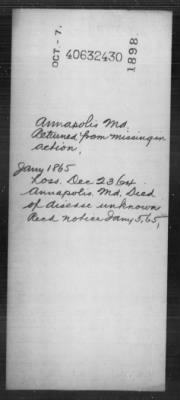 OCT.-7.
40632430
1898
Annapolis Md.
Returned from missing in
action.
Jany 1865
Loss. Dec 23 64
Annapolis. Md. Died
of disease unknown
Recd notice Jany, 5, 65,